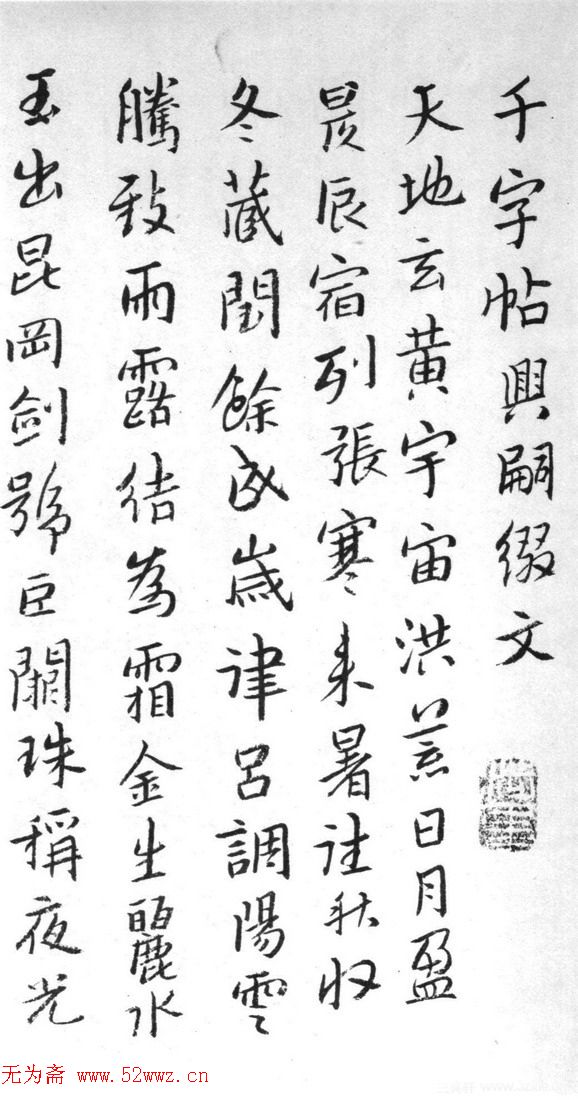 千字帖興嗣綴文
天地玄黄宇宙洪荒日月盈
昃辰宿列張寒来暑往秋収
冬蔵閏餘成歲律吕調陽雲
騰致雨露结為霜金生麗水
玉出昆岡劍號巨闕珠稱夜光
无为斋 www.52wwz.cn